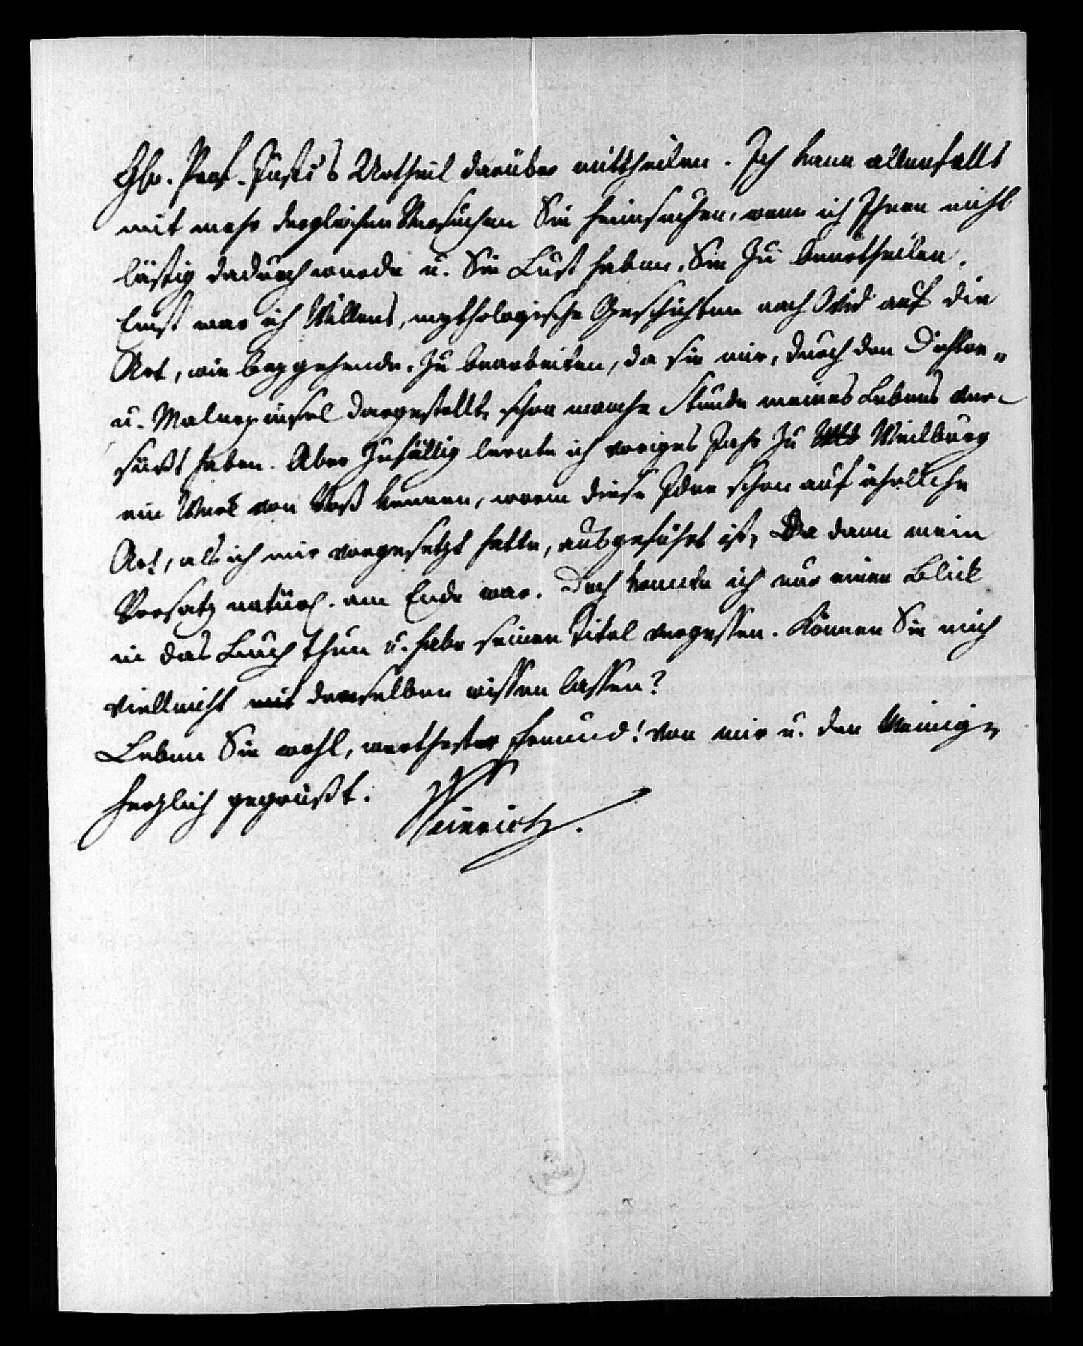 Hr. Prof. Justi's Urtheil darüber mittheilen. Ich kann allenfalls
mit mehr dergleichen Versuchen Sie heimsuchen, wenn ich Ihnen nicht
lästig dadurch werde u. Sie Lust haben, Sie zu beurtheilen.
Einst war ich Willens, mythologische Geschichten nach Ovid auf die
Art, wie beygehende, zu bearbeiten, da sie mir, durch den Dichter-
u. Malerpinsel dargestellt, schon manche Stunde meines Lebens ver-
süßt haben. Aber zufällig lernte ich voriges Jahr zu Weilburg
ein Werk von Voß kennen, worin diese Idee schon auf ähnliche
Art, als ich mir vorgesetzt hatte, ausgeführt ist, Da dann mein
Vorsatz natürl. am Ende war. Doch konnte ich nur einen Blick
in das Buch thun u. habe seinen Titel vergessen. Können Sie mich
vielleicht mit demselben wissen lassen?
Leben Sie wohl, werthester Freund! von mir u. den Meinigen
herzlich gegrüßt.